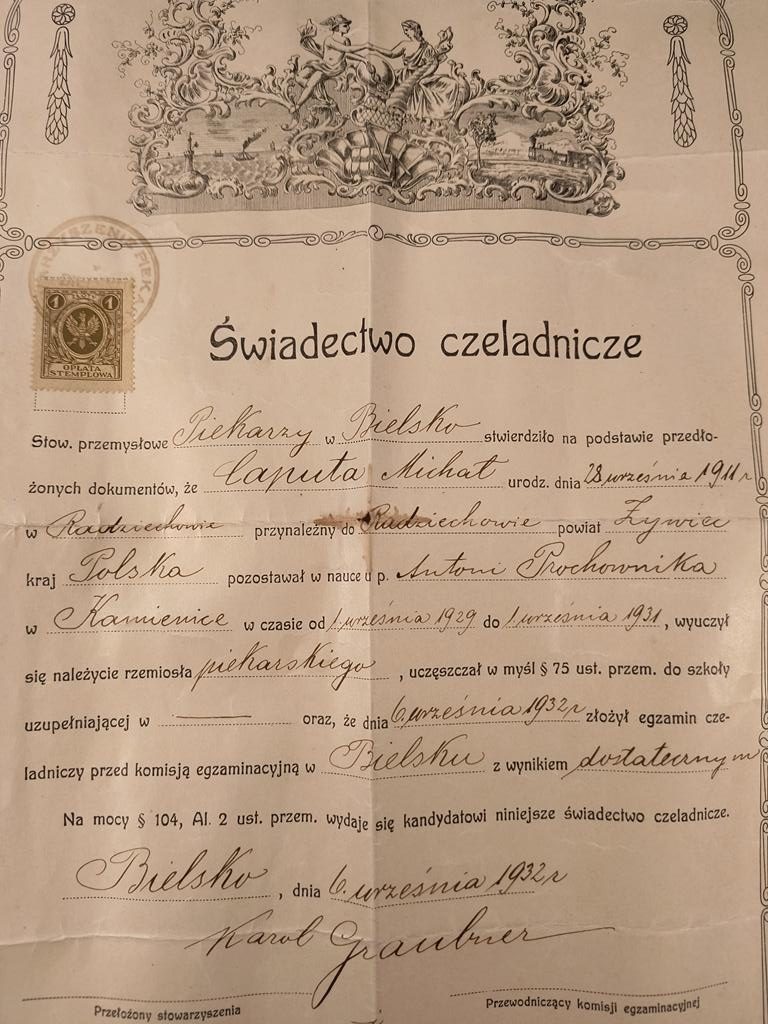 1 1
OPŁATA
STEMPLOWA
Świadectwo czeladnicze
Stow. przemysłowe Piekarzy w Bielsko stwierdziło na podstawie przedło-
żonych dokumentów, że Caputa Michał urodz. dnia 28 września 1911 r
w Radziechowie przynależny do Radziechowie powiat Żywiec
kraj Polska pozostawał w nauce u p. Antoni Prochownika
w Kamienice w czasie od 1. września 1929 do 1. września 1931, wyuczył
się należycie rzemiosła piekarskiego, uczęszczał w myśl § 75 ust. przem. do szkoły
uzupełniającej w — oraz, że dnia 6. września 1932 r złożył egzamin cze-
ladniczy przed komisją egzaminacyjną w Bielsku z wynikiem dostatecznym
Na mocy § 104, Al. 2 ust. przem. wydaje się kandydatowi niniejsze świadectwo czeladnicze.
Bielsko, dnia 6. września 1932 r
Karol Graubner
Przełożony stowarzyszenia Przewodniczący komisji egzaminacyjnej